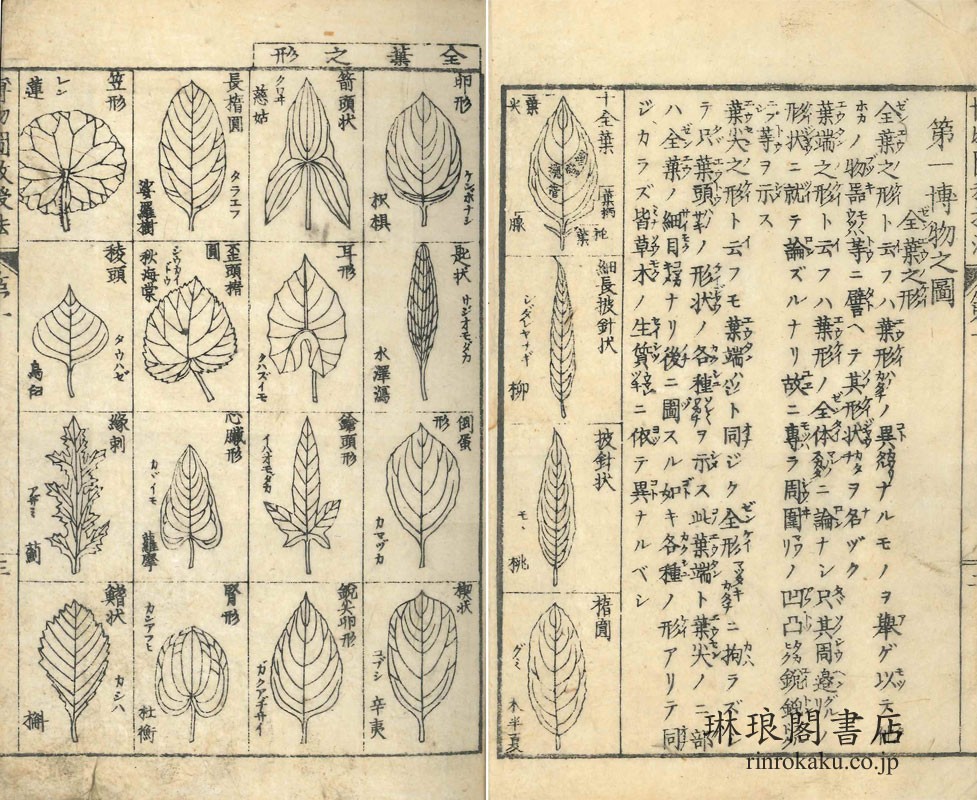 第一博物之圖
全葉之形
全葉之形ト云フハ葉形ノ異ナルモノヲ舉ゲ以テ他
ノ物器等ニ譬ヘテ其形状ヲ名ヅク
葉端之形ト云フハ葉形ノ全体ニ論ナシ只其周邉
形状ニ就テ論ズルナリ故ニ專ラ周圍ノ凹凸
等ヲ示ス
葉尖之形ト云フモ葉端ト同ジク全形ニ拘ラズ
テ只葉頭ノ形状ノ各種ヲ示ス此葉端ト葉尖ノ二部
ハ全葉ノ細目ナリ後ニ圖スル如キ各種ノ形アリテ同
ジカラズ皆草木ノ生質ニ依テ異ナルベシ
全葉
葉尖
葉柄
托葉
脈
細長披針状
シダレヤナギ
柳
披針状
モヽ
桃
楕圓
グミ
木半夏
全葉之形
卵形
ケンポナシ
枳椇
匙状
サジオモダカ
水澤瀉
倒蛋形
カマヅカ
楔状
コブシ
辛夷
箭頭状
クワヰ
慈姑
耳形
タハズイモ
鎗頭形
鋭尖卵形
ガクアヂサイ
長楕圓
タラエフ
娑羅樹
歪頭楕圓
シウカイドウ
秋海棠
心臓形
ガヾイモ
蘿藦
腎形
カンアフヒ
杜衡
笠形
レン
蓮
稜頭
タウハゼ
烏臼
縁刺
アザミ
薊
鰭状
カシハ
槲
博物圖教授法
琳琅閣書店
rinrokaku.co.jp